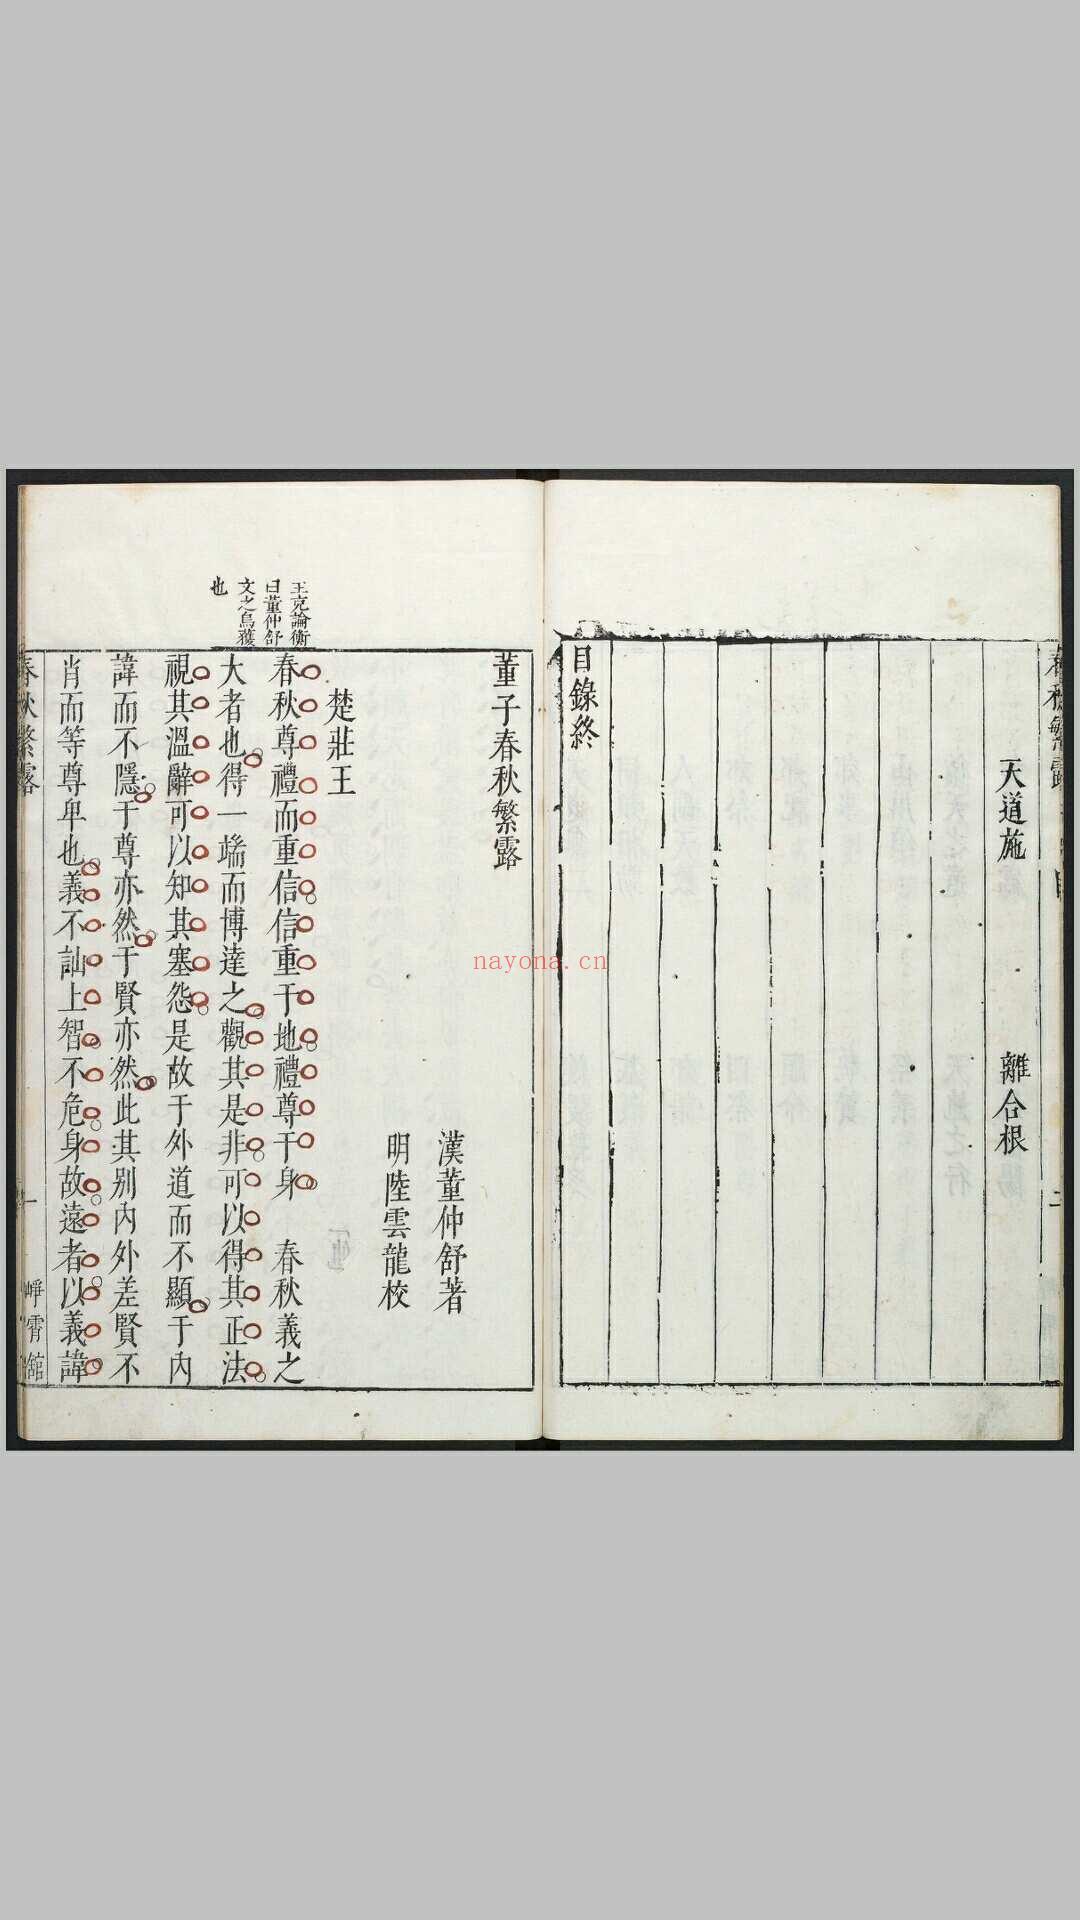 天道施　離合根
二
目錄終
董子春秋繁露
漢董仲舒著
明陸雲龍校
楚莊王
春秋尊禮而重信信重于地禮尊于身　春秋義之
大者也得一端而博達之觀其是非可以得其正法
視其溫辭可以知其塞怨是故于外道而不顯于內
諱而不隱于尊亦然于賢亦然此其別內外差賢不
肖而等尊卑也義不訕上智不危身故遠者以義諱
王充論衡
曰董仲舒
文之烏獲
也
春秋繁露
一
崢霄館
nayona.cn